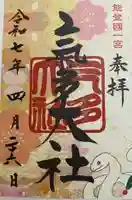 能登國一宮
奉拝
氣多大社
令和七年四月二十六日